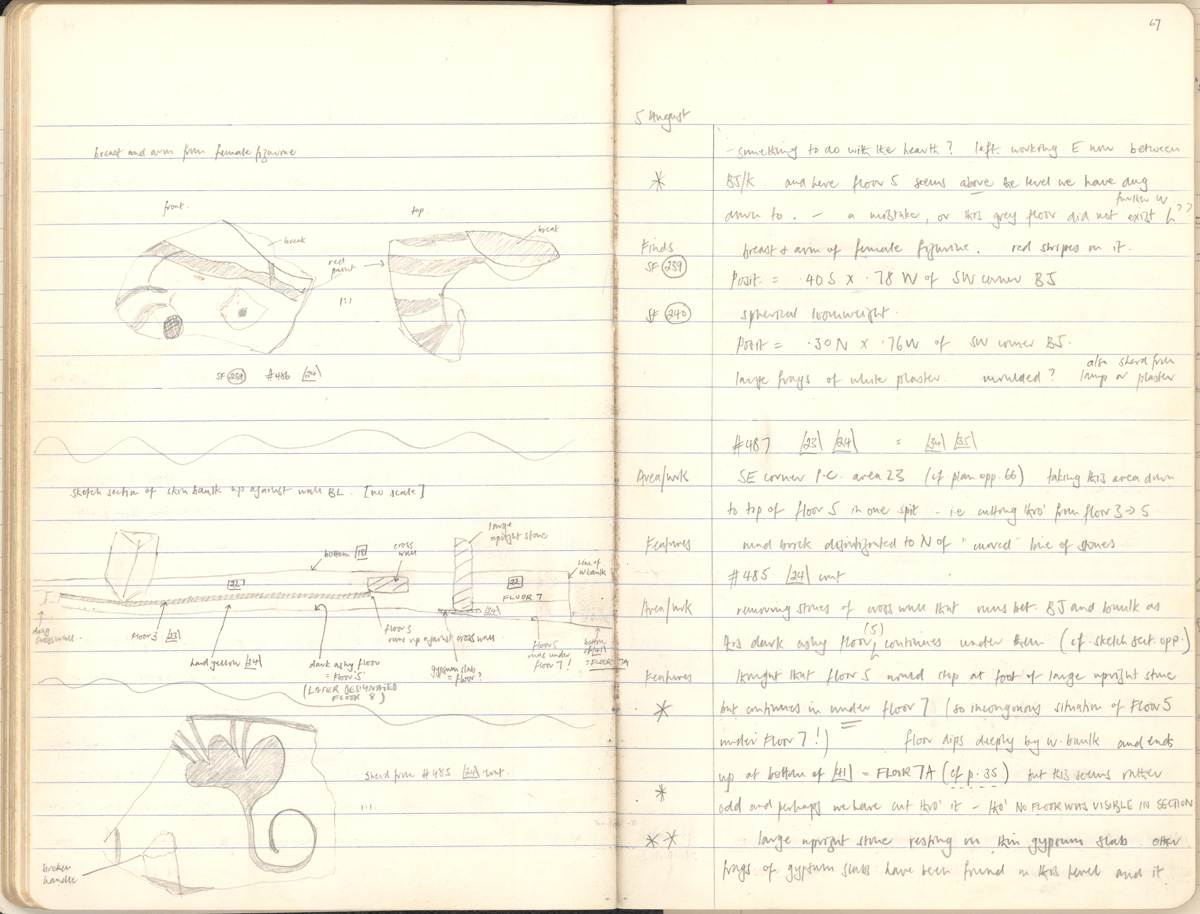 breast and arm from female figurine
front.
top.
break
break
red paint
1:1
SF 239 #486 /24\
sketch section of skin baulk up against wall BL. [no scale]
large upright stone
bottom 18
cross wall
line of W baulk
22
22
FLOOR 7
/24\
drag cross wall.
Floor 3 /23\
hard yellow /24\
dark ashy floor = floor 5
(LATER DESIGNATED FLOOR 8)
floor 3 runs up against cross wall
gypsum slab = floor?
floor 5 runs under floor 7!
bottom of /41\ = FLOOR 7A
sherd from #485 /24\ cont.
1:1.
broken handle
67
5 August
- something to do with the hearth? left. working E now between
* BJ/K. and here floor 5 seems above the level we have dug
down to. - a mistake, or this grey floor did not exist further W ??
Finds breast & arm of female figurine. red stripes on it.
SF 239 Posit. = .40 S x .78 W of SW corner BJ
SF 240 spherical loomweight.
Posit = .30 N x .76 W of SW corner BJ.
large frags of white plaster. moulded? also sherd from lamp or plaster
#487 /23\ /24\ = /34\ /35\
Area/wrk SE corner i.e. area 23 (cf plan opp. 66) taking this area down
to top of floor 5 in one spit - i.e cutting thro' from floor 3 → 5
Features mud brick disintegrated to N of "curved" line of stones
#485 /24\ cont
Area/wrk removing stones of cross wall that runs bet. BJ and baulk as
this dark ashy floor (5) continues under them (cf. sketch sect. opp.)
Features thought that floor 5 would stop at foot of large upright stone
* but continues in under floor 7 (so incongruous situation of Floor 5
under Floor 7!) floor dips deeply by W. baulk and ends
up at bottom of /41\ = FLOOR 7A (cf p. 35) but this seems rather
* odd and perhaps we have cut thro' it - tho' NO FLOOR WAS VISIBLE IN SECTION
** large upright stone resting on thin gypsum slab. other
frags of gypsum slabs have been found in this level and it